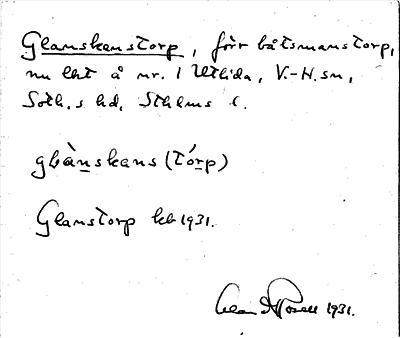 Glanskenstorp, förr båtsmanstorp,
nu lht å nr. 1 Uthida, V.-H. sn,
Soth.s hd, Sthlms l.
glànskans (tórp)
Glanstorp kb 1931.
1931.